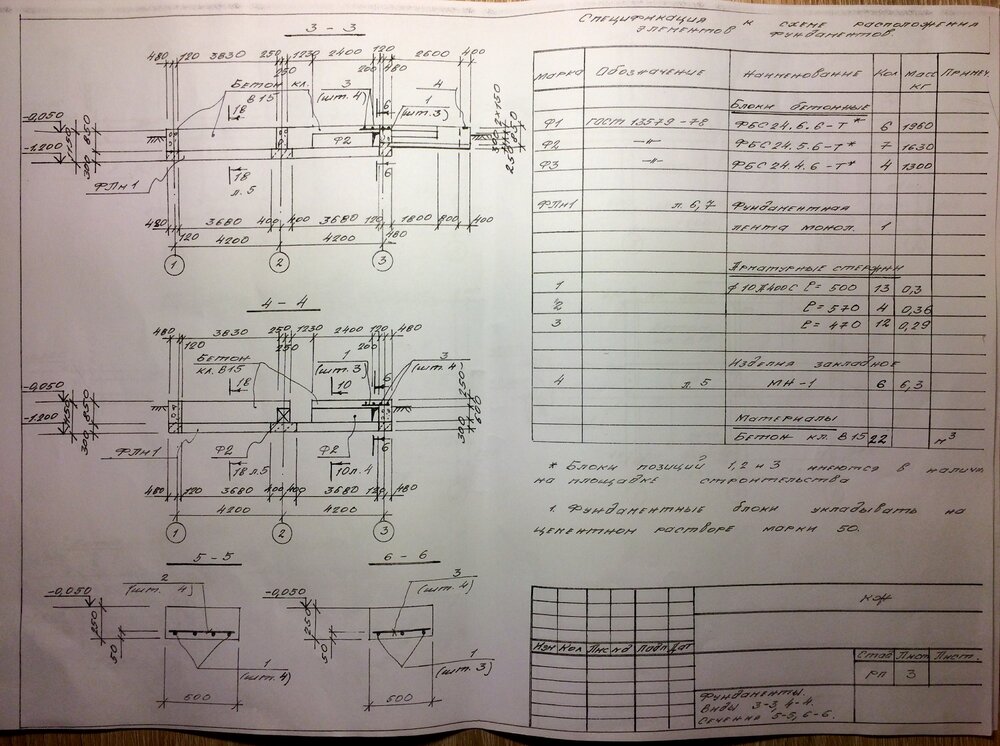 3 - 3
480 120 3830 250 1230 2400 120 2600 400
250 200 480
Бетон кл. В15
3 (шт. 4)
4
1 (шт. 3)
18
6
-0,050
-1,200
1150
300 850
Ф2
ФЛм1
18 л. 5
6
480 3680 400 400 3680 120 1800 800 400
120 480
4200 4200
1 2 3
4 - 4
480 3830 250 1230 2400 120 480
120 250 200
Бетон кл. В15
1 (шт. 3)
3 (шт. 4)
18 10 6
-0,050
-1,200
1150
300 850
ФЛм1 Ф2 Ф2
18 л.5 10 л. 4 6
480 120 3680 400 400 3680 120 480
4200 4200
1 2 3
5 - 5
2 (шт. 4)
-0,050
250
50
1 (шт. 4)
600
6 - 6
3 (шт. 4)
-0,050
250
50
1 (шт. 3)
600
Спецификация элементов к схеме расположения фундаментов.
Марка Обозначение Наименование Кол Масс кг Примеч.
Блоки бетонные
Ф1 ГОСТ 13579-78 ФБС 24.6.6-Т* 6 1960
Ф2 —"— ФБС 24.5.6-Т* 7 1630
Ф3 —"— ФБС 24.4.6-Т* 4 1300
ФЛм1 л. 6,7 Фундаментная
лента монол. 1
Арматурные стержни
1 ф 10 А400С ℓ= 500 13 0,3
2 ℓ= 570 4 0,36
3 ℓ= 470 12 0,29
Изделия закладное
4 л. 5 МН-1 6 6,3
Материалы
Бетон кл. В15 22 м³
* Блоки позиций 1,2 и 3 имеются в наличи
на площадке строительства
1. Фундаментные блоки укладывать на
цементном растворе марки 50.
КЖ
Изм Кол Лист №д Подп Дат
Стад Лист Лист.
РП 3
Фундаменты.
Виды 3-3, 4-4.
Сечения 5-5, 6-6.